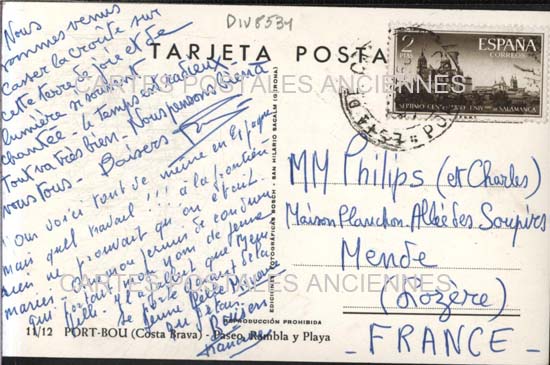 DIV8534
TARJETA POSTA
Nous
sommes venus
casser la croûte sur
cette terre de joie et de
lumière si souvent
chantée - le temps est gracieux -
Tout va très bien - Nous pensons bien à
vous tous - Baisers
nous voici tout de même en Espagne
mais quel travail !!! à la frontière
rien ne prouvait qu'on était
mariés - permis de conduire
qui portait nom de jeune
fille - il a fallu que
2
PTAS
ESPAÑA
CORREOS
SEPTIMO CENTº UNIV. SALAMANCA
MM Philips (et Charles)
Maison Planchon - Allée des Soupirs
Mende
(Lozère)
- FRANCE -
EDICIONES FOTOGRAFICAS BOSCH - SAN HILARIO SACALM (GERONA)
REPRODUCCIÓN PROHIBIDA
11/12 PORT-BOU (Costa Brava) - Paseo, Rambla y Playa
CARTES POSTALES ANCIENNES
CARTES POSTALES ANCIENNES